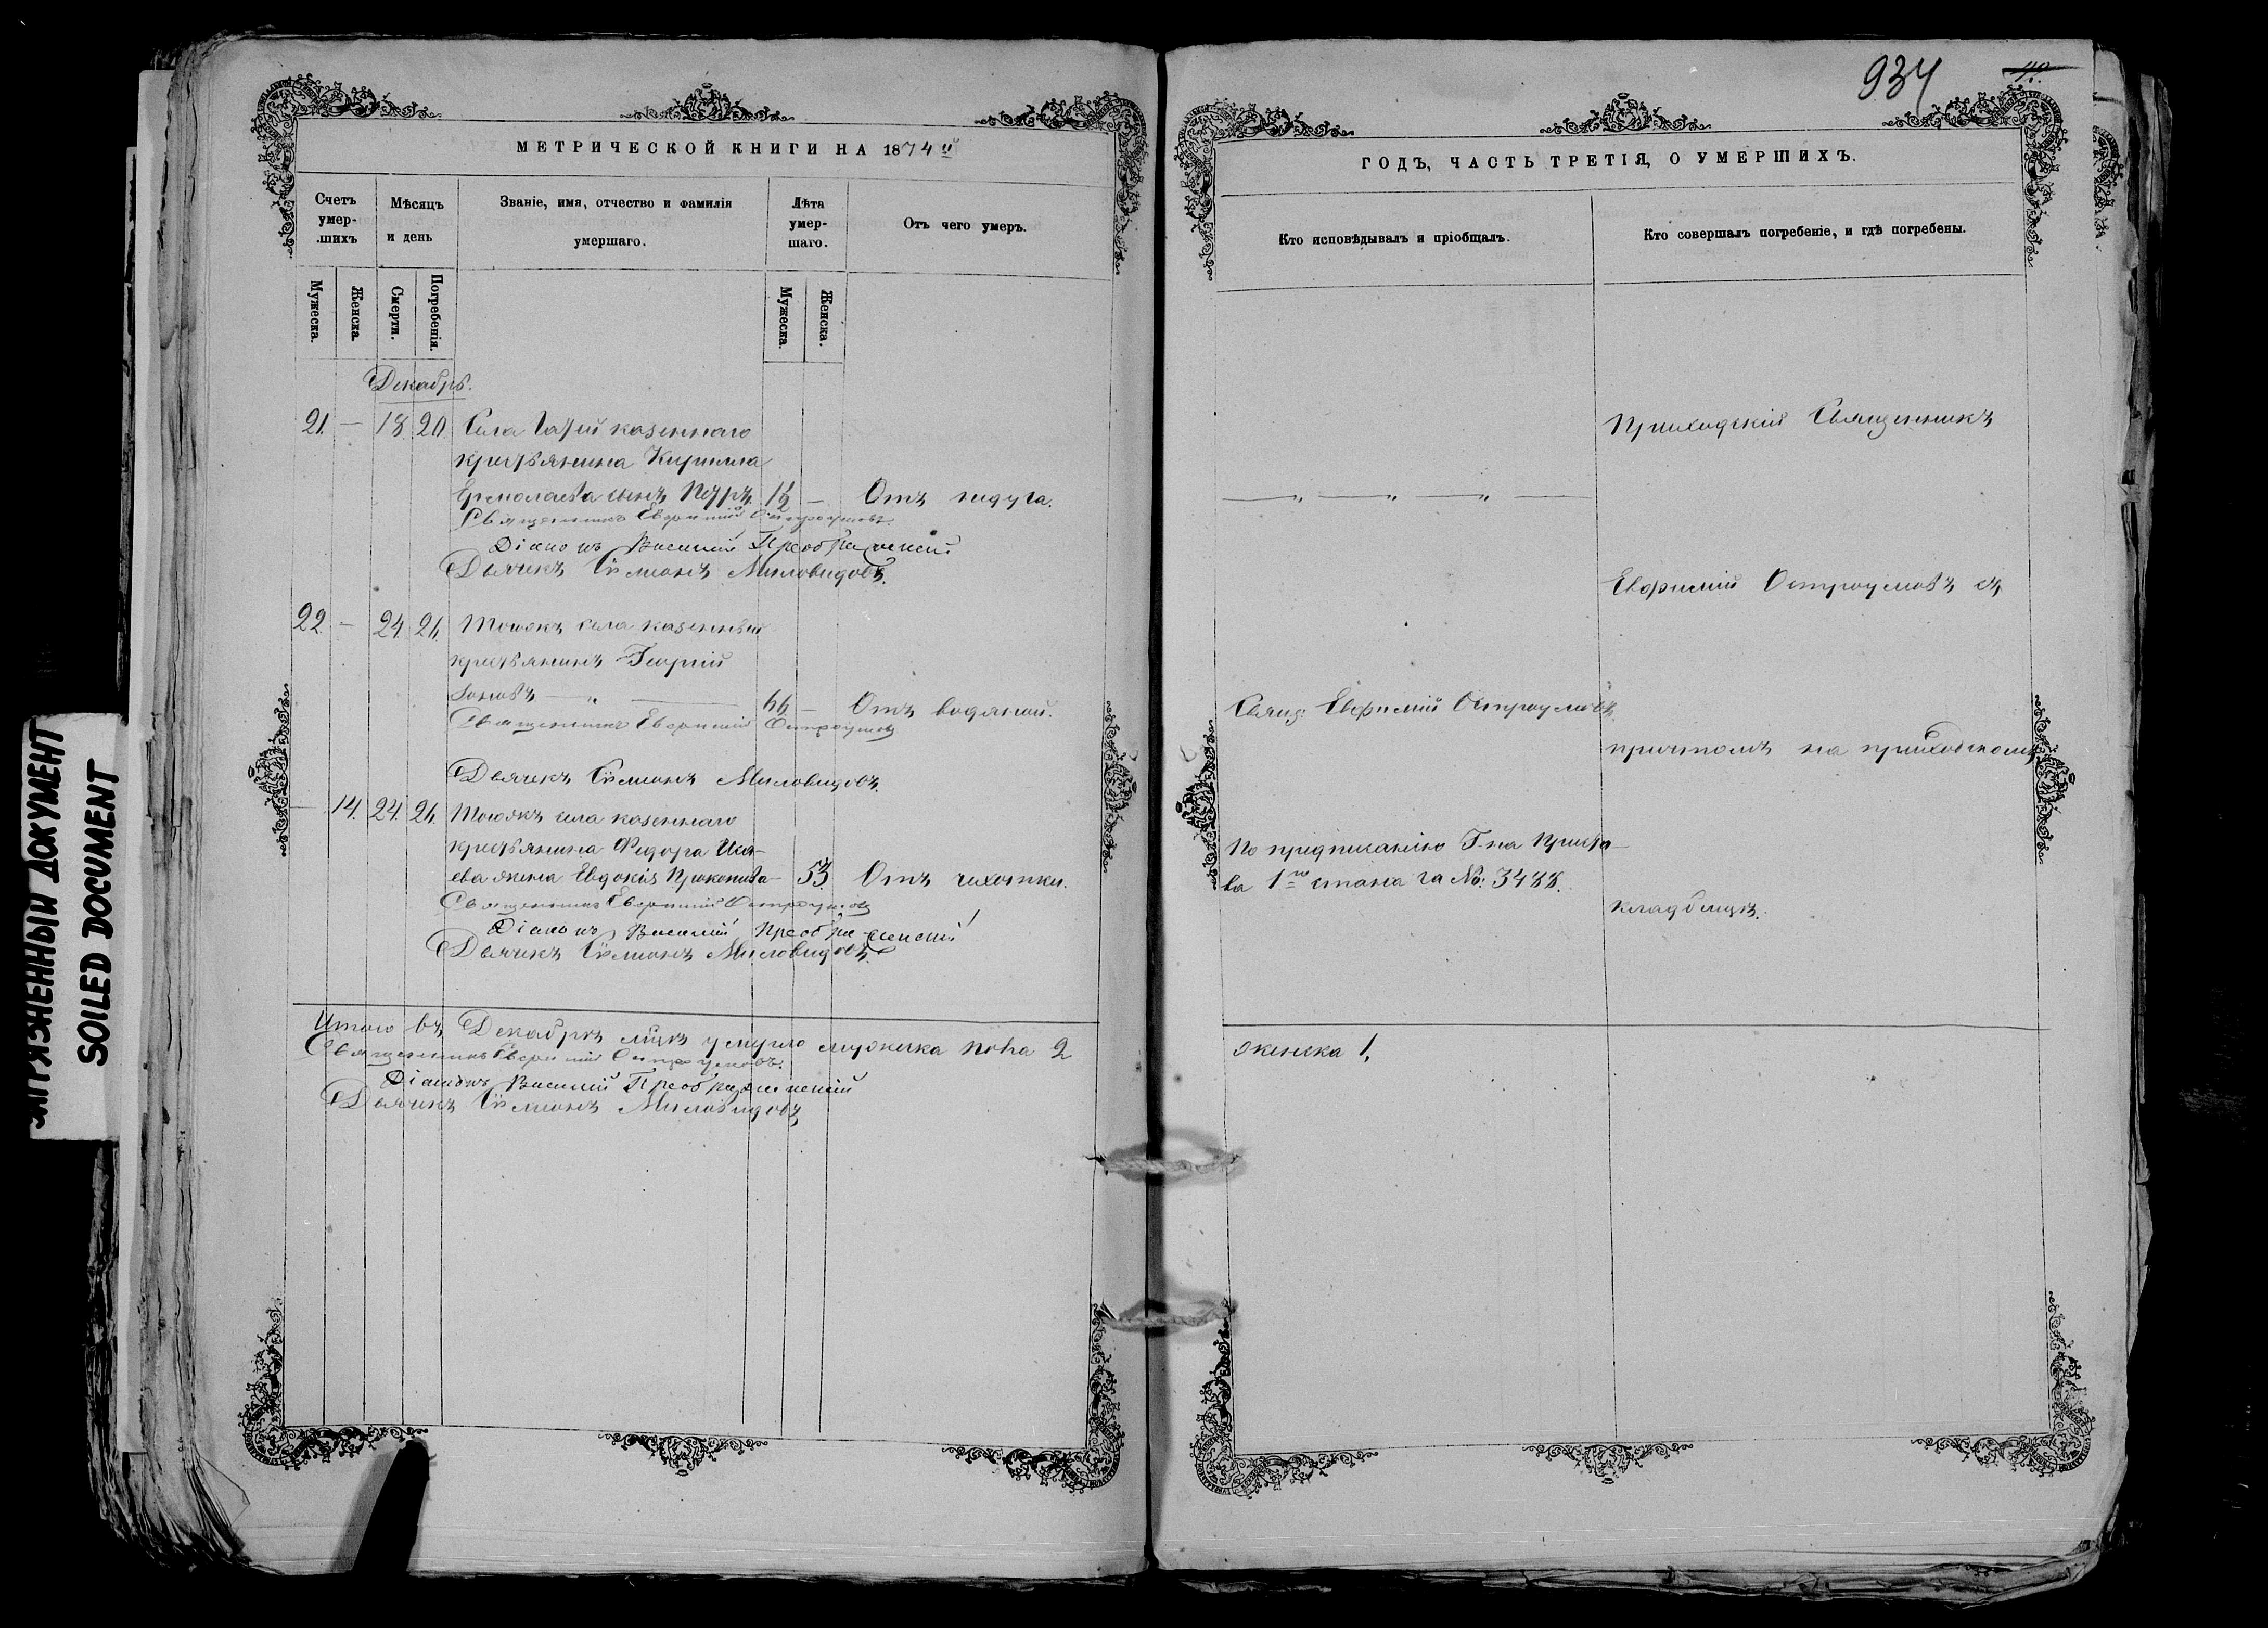 934
МЕТРИЧЕСКОЙ КНИГИ НА 1874й
ГОДЪ, ЧАСТЬ ТРЕТІЯ, О УМЕРШИХЪ.
Счетъ умер-шихъ
Мѣсяцъ и день
Званіе, имя, отчество и фамилія умершаго.
Лѣта умер-шаго.
Отъ чего умеръ.
Кто исповѣдывалъ и пріобщалъ.
Кто совершалъ погребеніе, и гдѣ погребены.
Мужеска.
Женска.
Смерти.
Погребенія.
Мужеска.
Женска.
Декабрь.
21. — 18 20 Села казеннаго
крестьянина Кирилла
Ермолаева сынъ Петръ. 1½ — Отъ недуга.
Священникъ Евфимій Остроумовъ.
Діаконъ Василій Преображенскій
Дьячекъ Симіонъ Миловидовъ.
22. — 24 26 Тогожъ села казенный
крестьянинъ Георгій
Іоновъ — „ — 66 — Отъ водяной.
Священникъ Евфимій Остроумовъ
Дьячекъ Симіонъ Миловидовъ.
— 14. 24. 26 Тогожъ села казеннаго
крестьянина Федора Иса-
ева жена Евдокія Прокопіева — 53. Отъ чихотки.
Священникъ Евфимій Остроумовъ
Діаконъ Василій Преображенскій
Дьячекъ Симіонъ Миловидовъ.
Итого въ Декабрѣ мцѣ умерло мужеска пола 2
Священникъ Евфимій Остроумовъ.
Діаконъ Василій Преображенскій
Дьячекъ Симіонъ Миловидовъ
— „ — „ — „ —
Свящ: Евфимій Остроумовъ
По предписанію Г-на Приста-
ва 1го стана за №: 3488.
женска 1.
Приходскій Священникъ
Евфимій Остроумовъ съ
причтомъ на приходскомъ
кладбищѣ.
ЗАГРЯЗНЕННЫЙ ДОКУМЕНТ
SOILED DOCUMENT